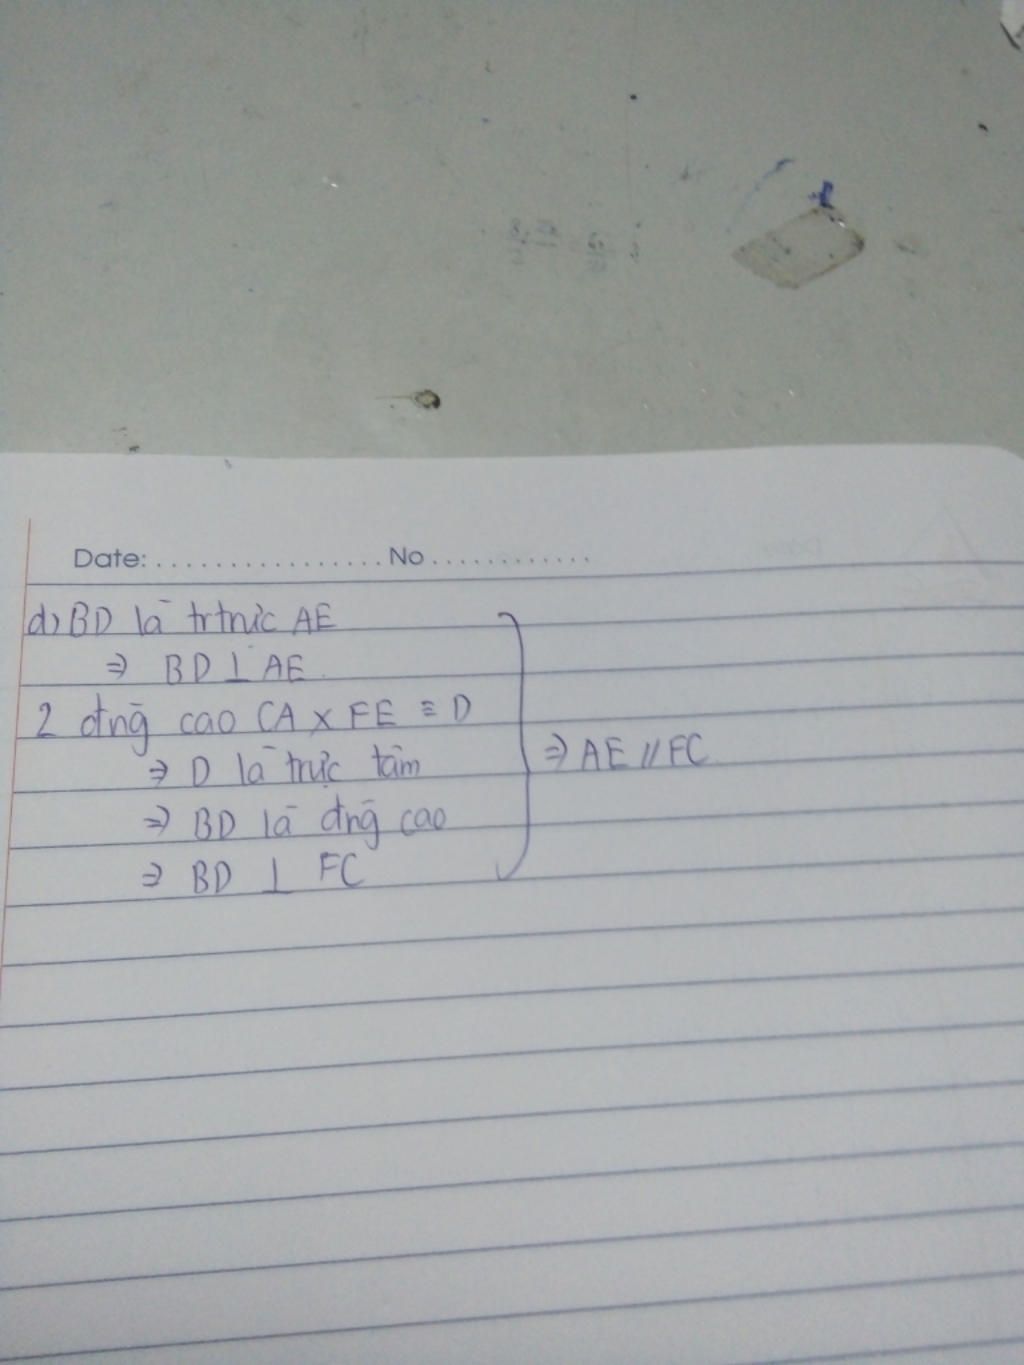 Date: ................. No ............
d) BD là trtrực AE
⇒ BD ⊥ AE
2 đng̃ cao CA x FE ≡ D
⇒ D là trực tâm
⇒ BD là đng̃ cao
⇒ BD ⊥ FC
⇒ AE // FC